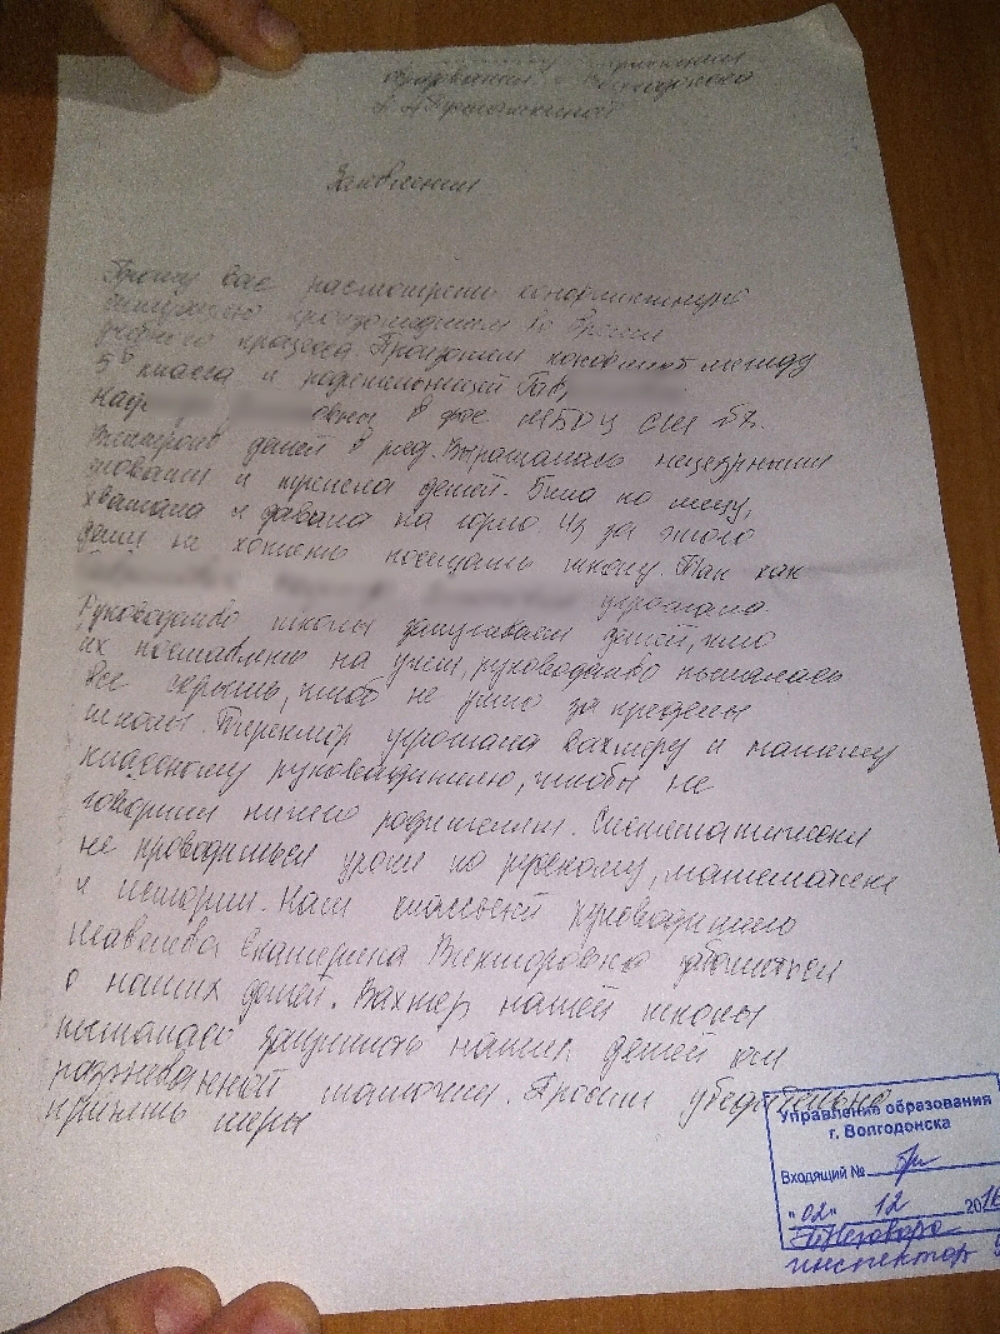 образования г. Волгодонска
Заявление
Прошу вас рассмотреть конфликтную
ситуацию произошедшую во время
учебного процесса Произошел конфликт между
5 класса и
в фое МБОУ СШ
детей в ряд. Выражалась нецензурными
словами и трепела детей. Била по лицу,
хватала и давала на горло Из за этого
дети не хотели посещать школу. Так как
угрожала.
Руководство школы запугивает детей, что
их поставлено на учет, руководство пыталась
все скрыть, чтоб не ушло за пределы
школы. Директор угрожала вахтеру и нашему
классному руководителю, чтобы не
говорили ничего родителям. Систематически
не проводиться уроки по рускому, математике
и истории. Наш классный руководитель
Екатерина Викторовна заботиться
о наших детей. Вахтер нашей школы
пыталась защитить наших детей от
разгневанной мамочки. Просим убедительно
принять меры
Управление образования
г. Волгодонска
Входящий №
"02" 12 2016
инспектор